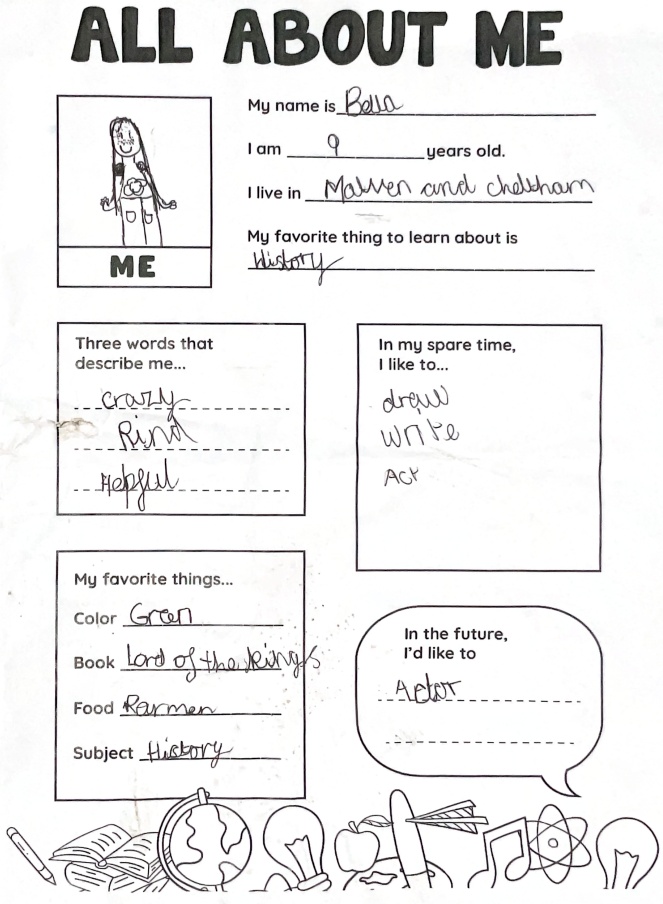 ALL ABOUT ME
My name is Bella
I am 9 years old.
I live in Malven and cheltham
My favorite thing to learn about is
History
ME
Three words that
describe me...
crazy
Kind
Helpful
In my spare time,
I like to...
draw
write
Act
My favorite things...
Color Green
Book Lord of the Rings
Food Rarmen
Subject History
In the future,
I'd like to
Actor